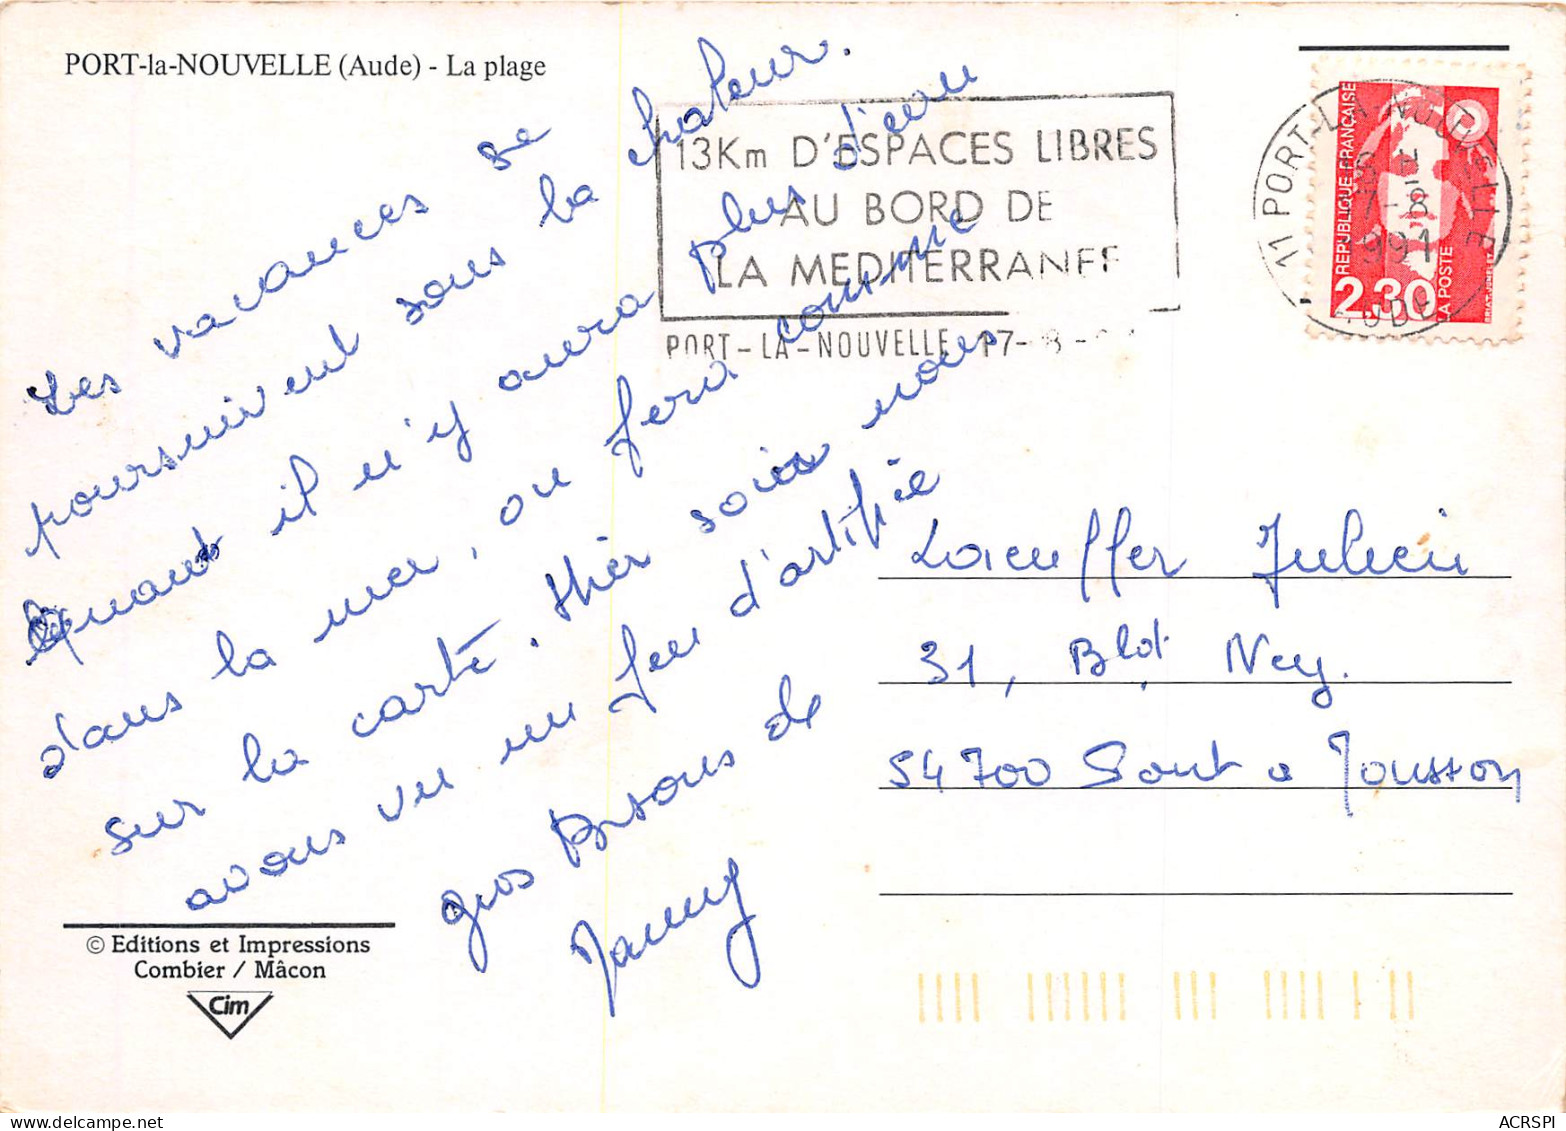 PORT-la-NOUVELLE (Aude) - La plage
Les vacances se
poursuivent sous la chaleur.
Quand il n'y aura plus d'eau
dans la mer, on fera comme
sur la carte. Hier soir nous
avons vu un feu d'artifie
gros Bisous de
13Km D'ESPACES LIBRES
AU BORD DE
LA MEDITERRANEE
PORT-LA-NOUVELLE 17-8-
11 PORT-LA-NOUVELLE
17-8
1991
AUDE
REPUBLIQUE FRANÇAISE
2,30
LA POSTE
Loeuffer Julien
31, Bld. Ney.
54700 Pont a Mousson
© Editions et Impressions
Combier / Mâcon
Cim
ACRSPI